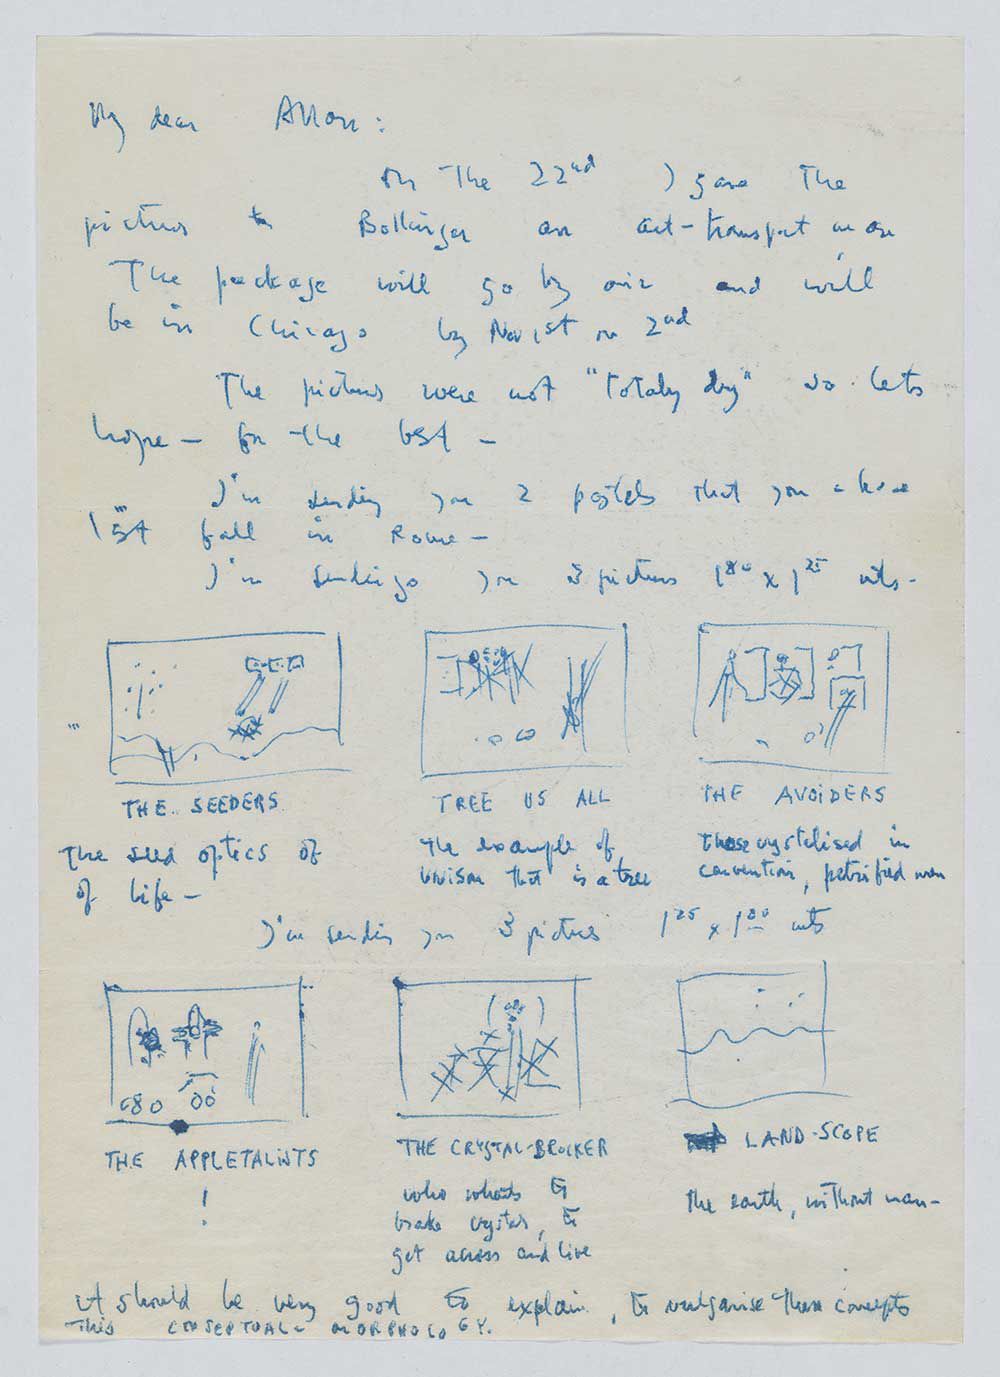 My dear Allan:
On the 22nd I gave the
pictures to Bollinger an art-transport
The package will go by air and will
be in Chicago by Nov 1st or 2nd
The pictures were not "totaly dry" so lets
hope – for the best –
I'm sending you 2 pastels that you
last fall in Rome –
I'm sending you 3 pictures 1 80 x 1 25 mts –
THE SEEDERS
TREE US ALL
THE AVOIDERS
The seed optics of
of life –
The example of
unison that is a tree
Those crystalised in
convention, petrified men
I'm sending you 3 pictures 1 25 x 1 80 mts
THE APPLETALISTS
!
THE CRYSTAL-BROCKER
who whants to
brake crystar, to
get across and live
LAND-SCOPE
The earth, without man –
it should be very good to explain, to vulgarise these concepts
This CONSEPTUAL – MORPHOLOGY.